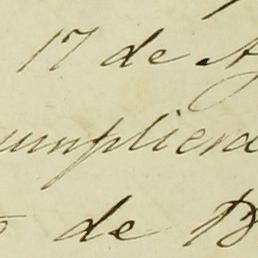 17 de A
umplierd
de B